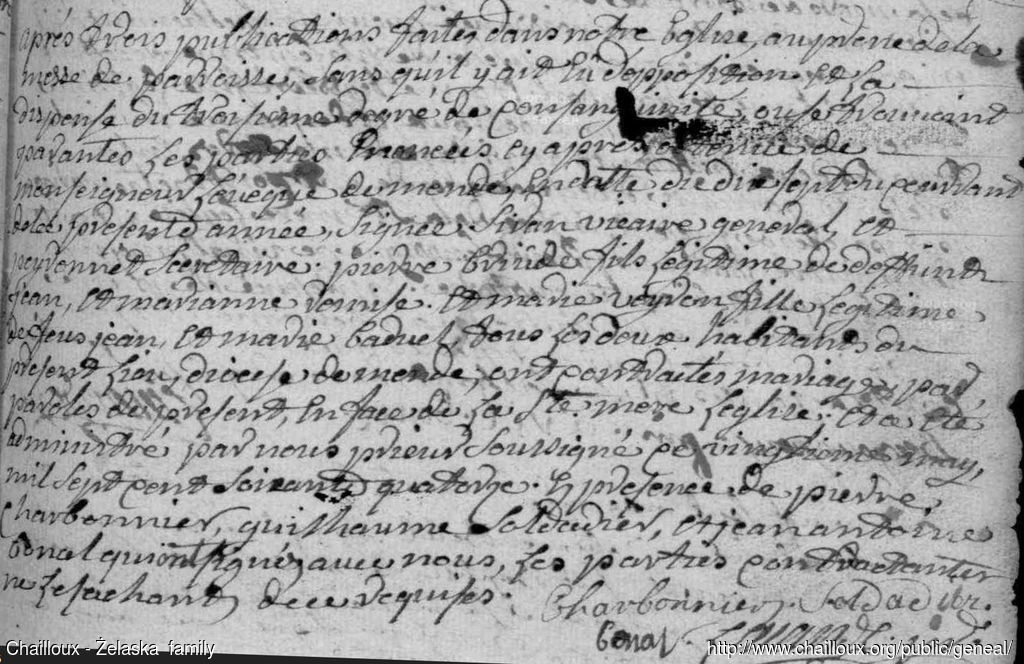 après trois publications faites dans notre Eglise, au prone de la
messe de parroisse, sans qu'il y ait Eû d'opposition Et la
dispense du troisieme degré de consanguinité, ou se trouvoint
parantes les parties Enoncées cy après obtenue de
monseigneur L'évêque de mende, En datte du dix sept du courrant
de la presente année, signée Sivan vicaire general, et
peyronnet secretaire. pierre fils legitime de deffunt
jean, Et marianne. Et marie veyron fille legitime
de feus jean, Et marie baduel, tous les deux habitants du
present lieu, diocese de mende, ont contractés mariage, par,
paroles de present, En face de la Ste mere Leglise; Et a eté
administré par nous prieur soussigné ce vingtieme may,
mil sept cent soixante quatorze. En presence de pierre
Charbonnier, guilhaume soldadier, et jean antoine
bonal qui ont signés avec nous, Les parties contractantes
ne le sachant, de ce requises. Charbonnier. Soldadier.
bonal.
Chailloux - Żelaska family
http://www.chailloux.org/public/geneal/